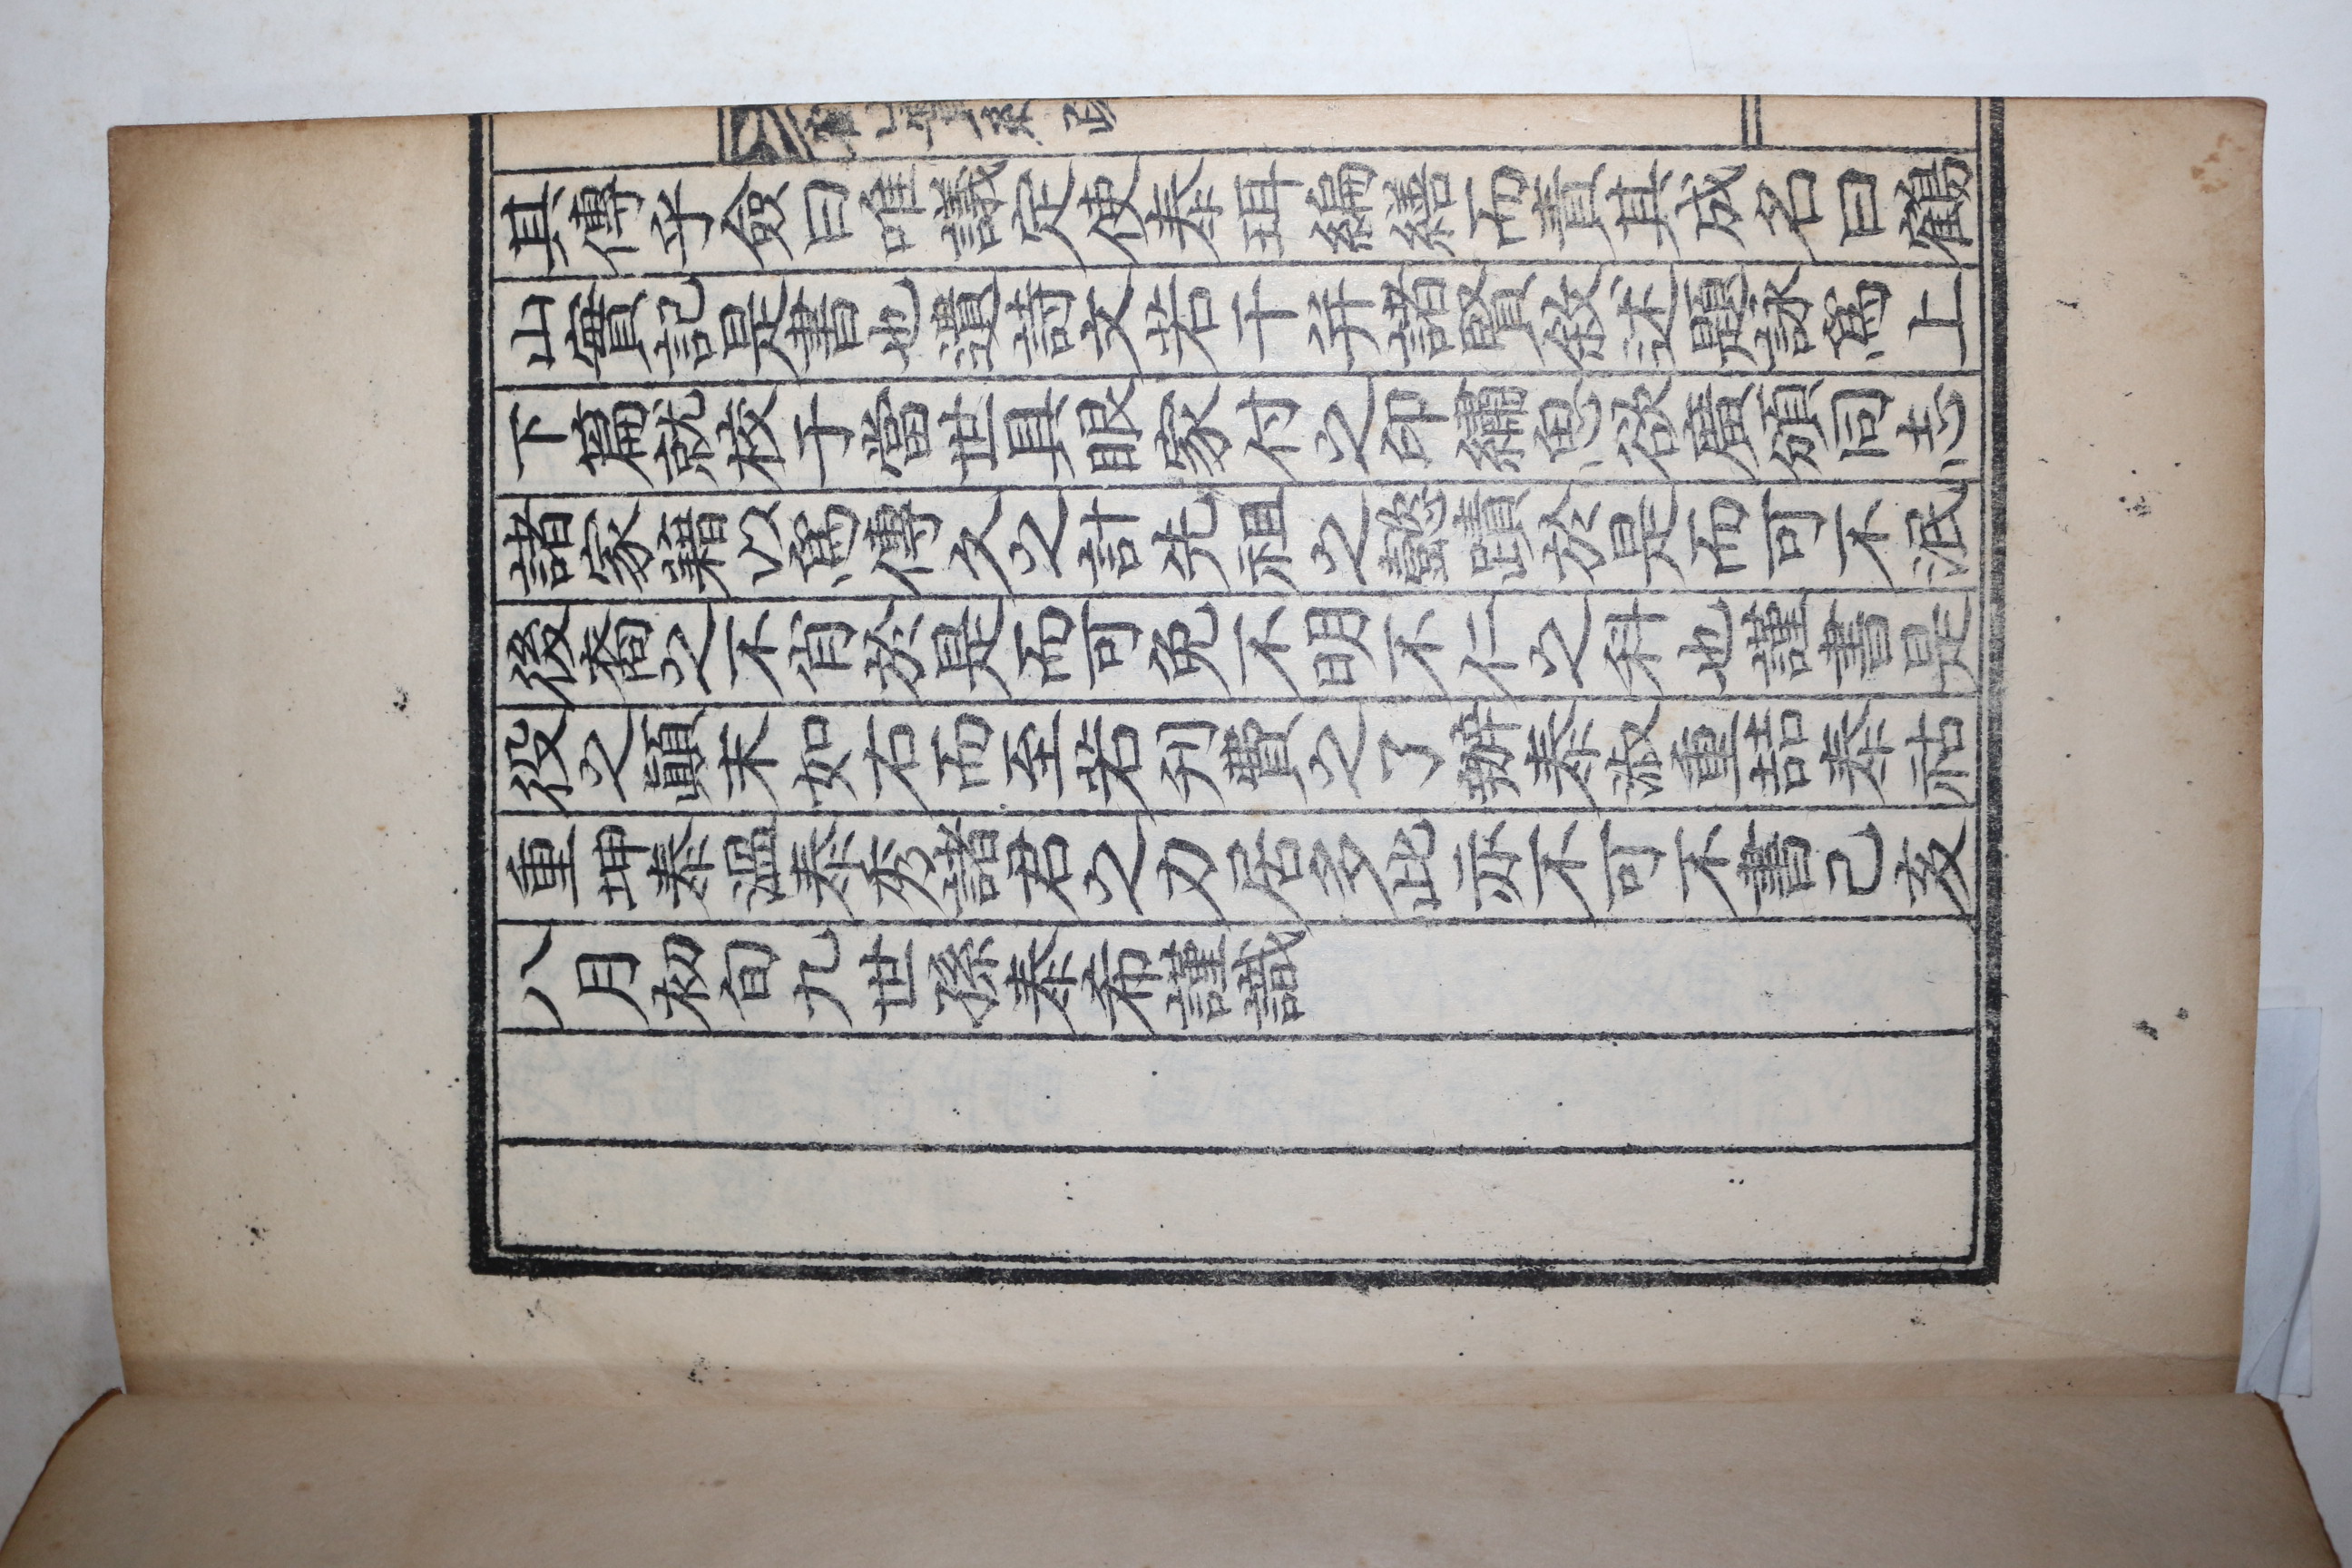 其傳乎僉曰唯議定使泰珥編繕而責其成名曰鶴
山實記是書也遺詩文若干幷諸賢敘述題詠爲上
下篇就校于當世具眼家付之印繡思欲廣頒同志
諸家籍以爲傳久之計先祖之懿蹟於是而可不泯
後裔之不肖於是而可免不明不仁之科也謹書是
役之顚末如右而至若刊費之了辦泰淑重喆泰祜
重坤泰溫泰秀諸君之力居多此亦不可不書己亥
八月初旬九世孫泰希謹識